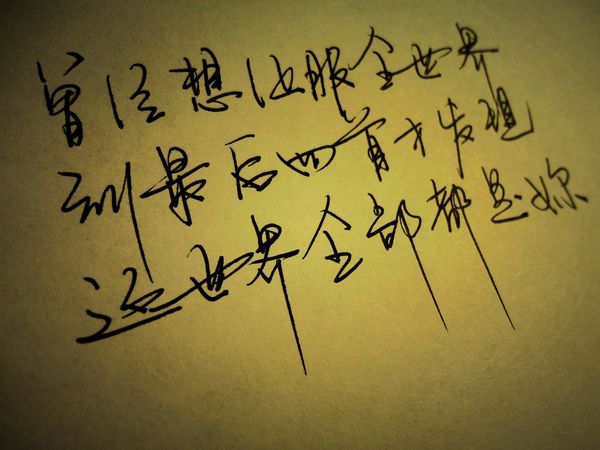 曾经想征服全世界
到最后回首才发现
这世界全部都是妳